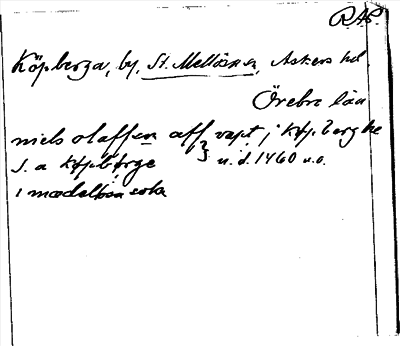 R.A.P.
Köpberga, by, St. Mellösa sn, Askers hd.
Örebro län
niels olaffsen aff vapt j køpberghe
s. a køpbørge } u. d. 1460 u.o.
i mædeløsa sokn